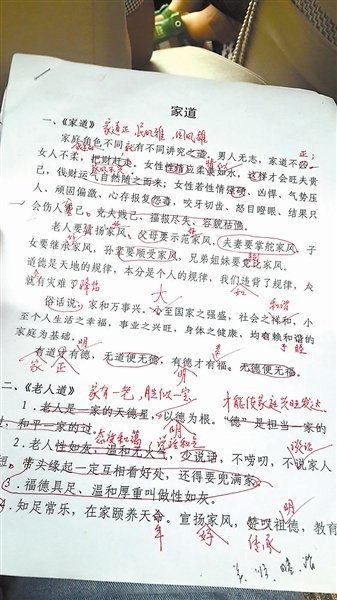 家道
一、《家道》 家道正 民风雄 国风雄
家庭角色不同就有不同讲究之道。男人无志，家道不正；
女人不柔，把财赶走。女性性情应柔顺如水，这样才会旺夫贵
己，钱财运气自然随之而来；女性若性情强硬、凶悍、气势压
人、顽固偏激、心存报复、咬牙切齿、怒目瞪眼、结果只
会伤人害己。克夫败己、福报尽失、容貌枯憔。
老人要宣扬家风、父母要示范家风、夫妻要掌舵家风、子
女要继承家风、孙辈要顺受家风、兄弟姐妹要竞比家风。
道德是天地的规律，本分是个人的规律，我们违背了规律，
就有灾难了降临
俗话说：家和万事兴。小至国家之强盛，社会之祥和，小
至个人生活之幸福，事业之兴旺，身体之健康，均有赖和谐的
家庭为基础。
有道必有德，无道便无德，有德才有福。无德便无福。
二、《老人道》 家有一老，胜似一宝 才能使家庭兴旺发达
1．老人是一家的天德星，以德为根。“德”是担当一家的
过，和平一家的过。
2．老人性如灰，温和无火气，少说话，不唠叨，不说家人
短。带头缘起一定互相看好处，还得要兜满家。
3．福德具足、温和厚重叫做性如灰。
4．知足常乐，在家颐养天命。宣扬家风，赞叹祖德，教育
传承